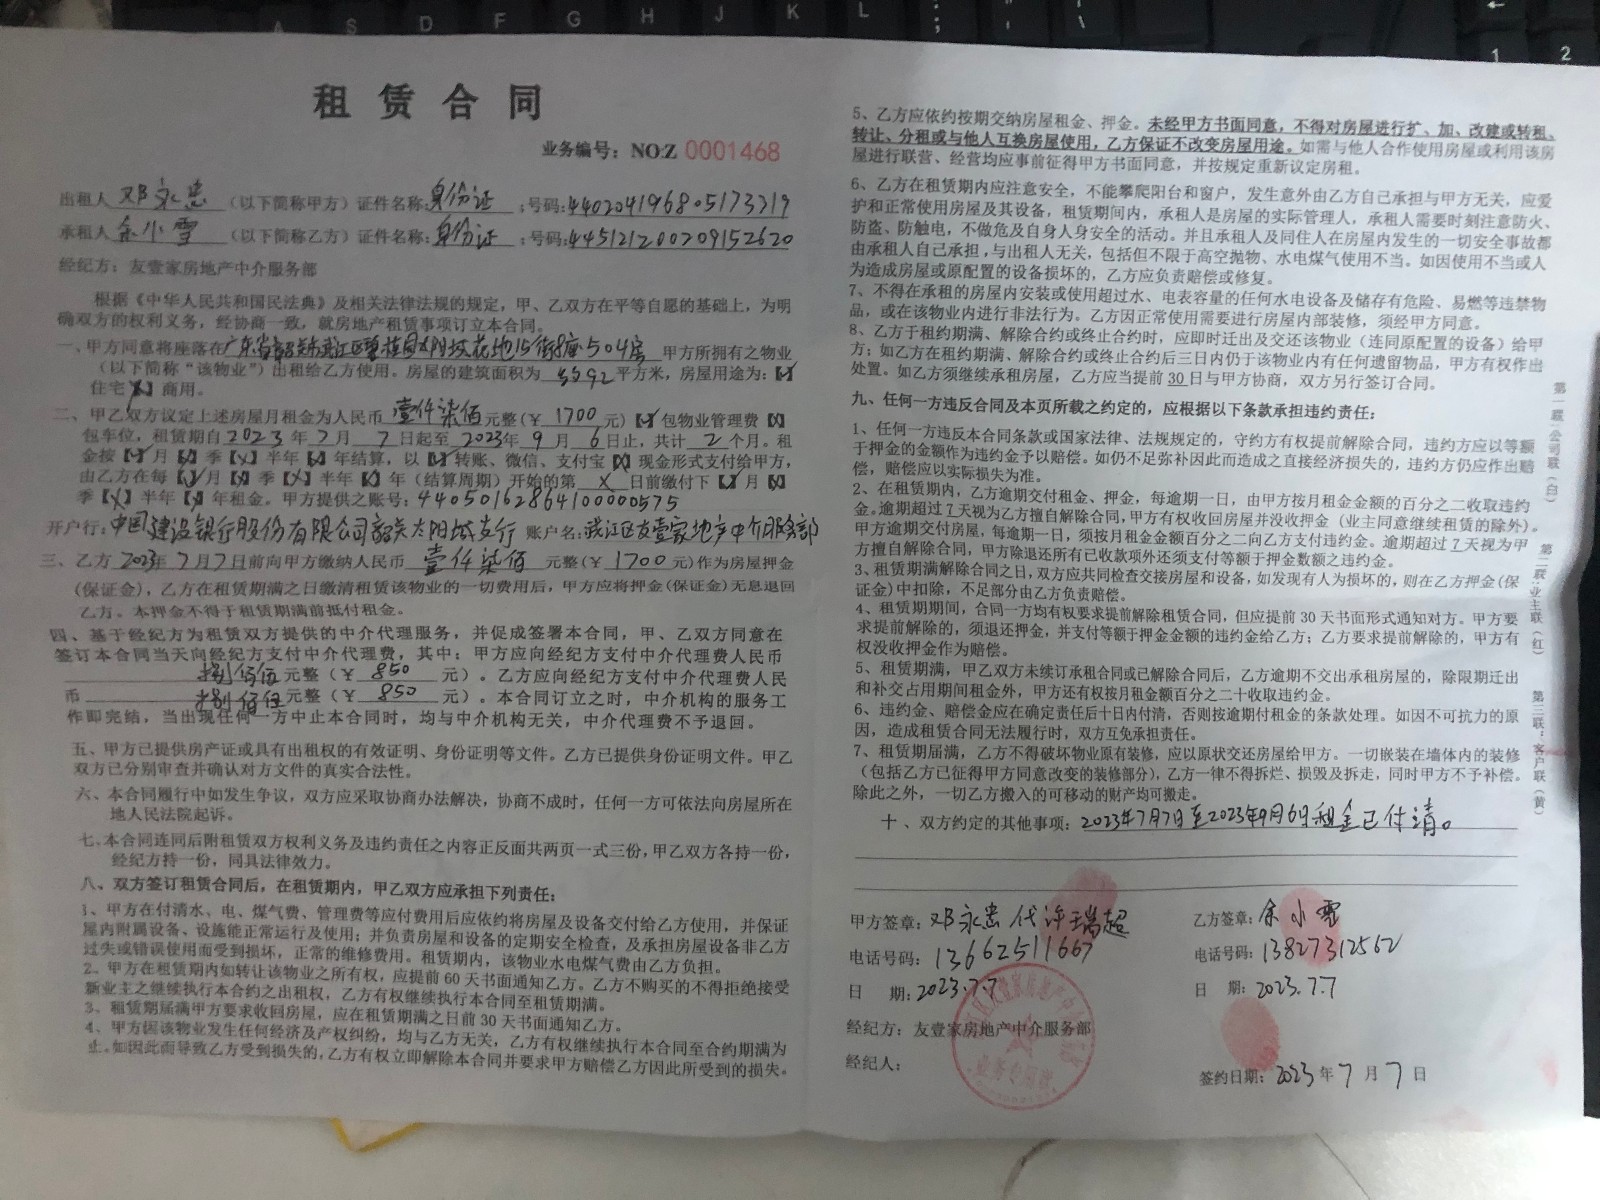 租赁合同
业务编号：NO:Z 0001468
出租人 邓永忠 （以下简称甲方）证件名称：身份证 ；号码：440204196805173319
承租人 余小雪 （以下简称乙方）证件名称：身份证 ；号码：445121200209152620
经纪方：友壹家房地产中介服务部
根据《中华人民共和国民法典》及相关法律法规的规定，甲、乙双方在平等自愿的基础上，为明
确双方的权利义务，经协商一致，就房地产租赁事项订立本合同。
一、甲方同意将座落在广东省韶关市武江区碧桂园太阳城花地15街8座504房 甲方所拥有之物业
（以下简称“该物业”）出租给乙方使用。房屋的建筑面积为 平方米，房屋用途为：【√】
住宅【X】商用。
二、甲乙双方议定上述房屋月租金为人民币 壹仟柒佰 元整（￥ 1700 元）【√】包物业管理费【X】
包车位，租赁期自2023年7月7日起至2023年9月6日止，共计2个月。租
金按【√】月【X】季【X】半年【X】年结算，以【√】转账、微信、支付宝【X】现金形式支付给甲方，
由乙方在每【√】月【X】季【X】半年【X】年（结算周期）开始的第 X 日前缴付下【√】月【X】
季【X】半年【X】年租金。甲方提供之账号：44050162864100000575
开户行：中国建设银行股份有限公司韶关太阳城支行 账户名：武江区友壹家地产中介服务部
三、乙方2023年7月7日前向甲方缴纳人民币 壹仟柒佰 元整（￥ 1700 元）作为房屋押金
（保证金），乙方在租赁期满之日缴清租赁该物业的一切费用后，甲方应将押金（保证金）无息退回
乙方。本押金不得于租赁期满前抵付租金。
四、基于经纪方为租赁双方提供的中介代理服务，并促成签署本合同，甲、乙双方同意在
签订本合同当天向经纪方支付中介代理费，其中：甲方应向经纪方支付中介代理费人民币
捌佰伍 元整（￥ 850 元）。乙方应向经纪方支付中介代理费人民
币 捌佰伍 元整（￥ 850 元）。本合同订立之时，中介机构的服务工
作即完结，当出现任何一方中止本合同时，均与中介机构无关，中介代理费不予退回。
五、甲方已提供房产证或具有出租权的有效证明、身份证明等文件。乙方已提供身份证明文件。甲乙
双方已分别审查并确认对方文件的真实合法性。
六、本合同履行中如发生争议，双方应采取协商办法解决，协商不成时，任何一方可依法向房屋所在
地人民法院起诉。
七、本合同连同后附租赁双方权利义务及违约责任之内容正反面共两页一式三份，甲乙双方各持一份，
经纪方持一份，同具法律效力。
八、双方签订租赁合同后，在租赁期内，甲乙双方应承担下列责任：
1、甲方在付清水、电、煤气费、管理费等应付费用后应依约将房屋及设备交付给乙方使用，并保证
屋内附属设备、设施能正常运行及使用；并负责房屋和设备的定期安全检查，及承担房屋设备非乙方
过失或错误使用而受到损坏，正常的维修费用。租赁期内，该物业水电煤气费由乙方负担。
2、甲方在租赁期内如转让该物业之所有权，应提前60天书面通知乙方。乙方不购买的不得拒绝接受
新业主之继续执行本合约之出租权，乙方有权继续执行本合同至租赁期满。
3、租赁期届满甲方要求收回房屋，应在租赁期满之日前30天书面通知乙方。
4、甲方因该物业发生任何经济及产权纠纷，均与乙方无关，乙方有权继续执行本合同至合约期满为
止。如因此而导致乙方受到损失的，乙方有权立即解除本合同并要求甲方赔偿乙方因此所受到的损失。
5、乙方应依约按期交纳房屋租金、押金。未经甲方书面同意，不得对房屋进行扩、加、改建或转租、
转让、分租或与他人互换房屋使用，乙方保证不改变房屋用途。如需与他人合作使用房屋或利用该房
屋进行联营、经营均应事前征得甲方书面同意，并按规定重新议定房租。
6、乙方在租赁期内应注意安全，不能攀爬阳台和窗户，发生意外由乙方自己承担与甲方无关，应爱
护和正常使用房屋及其设备，租赁期间内，承租人是房屋的实际管理人，承租人需要时刻注意防火、
防盗、防触电，不做危及自身人身安全的活动。并且承租人及同住人在房屋内发生的一切安全事故都
由承租人自己承担，与出租人无关，包括但不限于高空抛物、水电煤气使用不当。如因使用不当或人
为造成房屋或原配置的设备损坏的，乙方应负责赔偿或修复。
7、不得在承租的房屋内安装或使用超过水、电表容量的任何水电设备及储存有危险、易燃等违禁物
品，或在该物业内进行非法行为。乙方因正常使用需要进行房屋内部装修，须经甲方同意。
8、乙方于租约期满、解除合约或终止合约时，应即时迁出及交还该物业（连同原配置的设备）给甲
方；如乙方在租约期满、解除合约或终止合约后三日内仍于该物业内有任何遗留物品，甲方有权作出
处置。如乙方须继续承租房屋，乙方应当提前30日与甲方协商，双方另行签订合同。
九、任何一方违反合同及本页所载之约定的，应根据以下条款承担违约责任：
1、任何一方违反本合同条款或国家法律、法规规定的，守约方有权提前解除合同，违约方应以等额
于押金的金额作为违约金予以赔偿。如仍不足弥补因此而造成之直接经济损失的，违约方仍应作出赔
偿，赔偿应以实际损失为准。
2、在租赁期内，乙方逾期交付租金、押金，每逾期一日，由甲方按月租金金额的百分之二收取违约
金。逾期超过7天视为乙方擅自解除合同，甲方有权收回房屋并没收押金（业主同意继续租赁的除外）。
甲方逾期交付房屋，每逾期一日，须按月租金金额百分之二向乙方支付违约金。逾期超过7天视为甲
方擅自解除合同，甲方除退还所有已收款项外还须支付等额于押金数额之违约金。
3、租赁期满解除合同之日，双方应共同检查交接房屋和设备，如发现有人为损坏的，则在乙方押金（保
证金）中扣除，不足部分由乙方负责赔偿。
4、租赁期期间，合同一方均有权要求提前解除租赁合同，但应提前30天书面形式通知对方。甲方要
求提前解除的，须退还押金，并支付等额于押金金额的违约金给乙方；乙方要求提前解除的，甲方有
权没收押金作为赔偿。
5、租赁期满，甲乙双方未续订承租合同或已解除合同后，乙方逾期不交出承租房屋的，除限期迁出
和补交占用期间租金外，甲方还有权按月租金额百分之二十收取违约金。
6、违约金、赔偿金应在确定责任后十日内付清，否则按逾期付租金的条款处理。如因不可抗力的原
因，造成租赁合同无法履行时，双方互免承担责任。
7、租赁期届满，乙方不得破坏物业原有装修，应以原状交还房屋给甲方。一切嵌装在墙体内的装修
（包括乙方已征得甲方同意改变的装修部分），乙方一律不得拆烂、损毁及拆走，同时甲方不予补偿。
除此之外，一切乙方搬入的可移动的财产均可搬走。
十、双方约定的其他事项：2023年7月7日至2023年9月6日租金已付清。
甲方签章：邓永忠 代 许瑞超
电话号码：13662511667
日 期：2023.7.7
经纪方：友壹家房地产中介服务部
经纪人：
乙方签章：余小雪
电话号码：13827312562
日 期：2023.7.7
签约日期：2023年7月7日
第一联：公司联（白） 第二联：业主联（红） 第三联：客户联（黄）
业务专用章
A S D F G H J K L
1 2